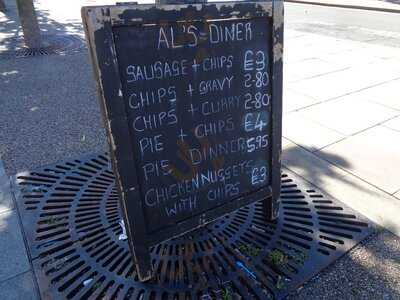 AL'S DINER
SAUSAGE + CHIPS £3
CHIPS + GRAVY 2-80
CHIPS + CURRY 2-80
PIE + CHIPS £4
PIE DINNER 5.95
CHICKEN NUGGETS £3
WITH CHIPS